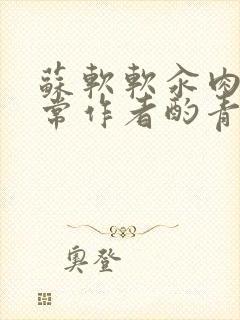 蘇軟軟汆肉
常作者酌青
奧登